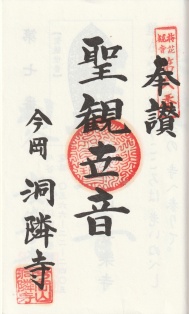 奉讃
聖観世音
今岡 洞隣寺